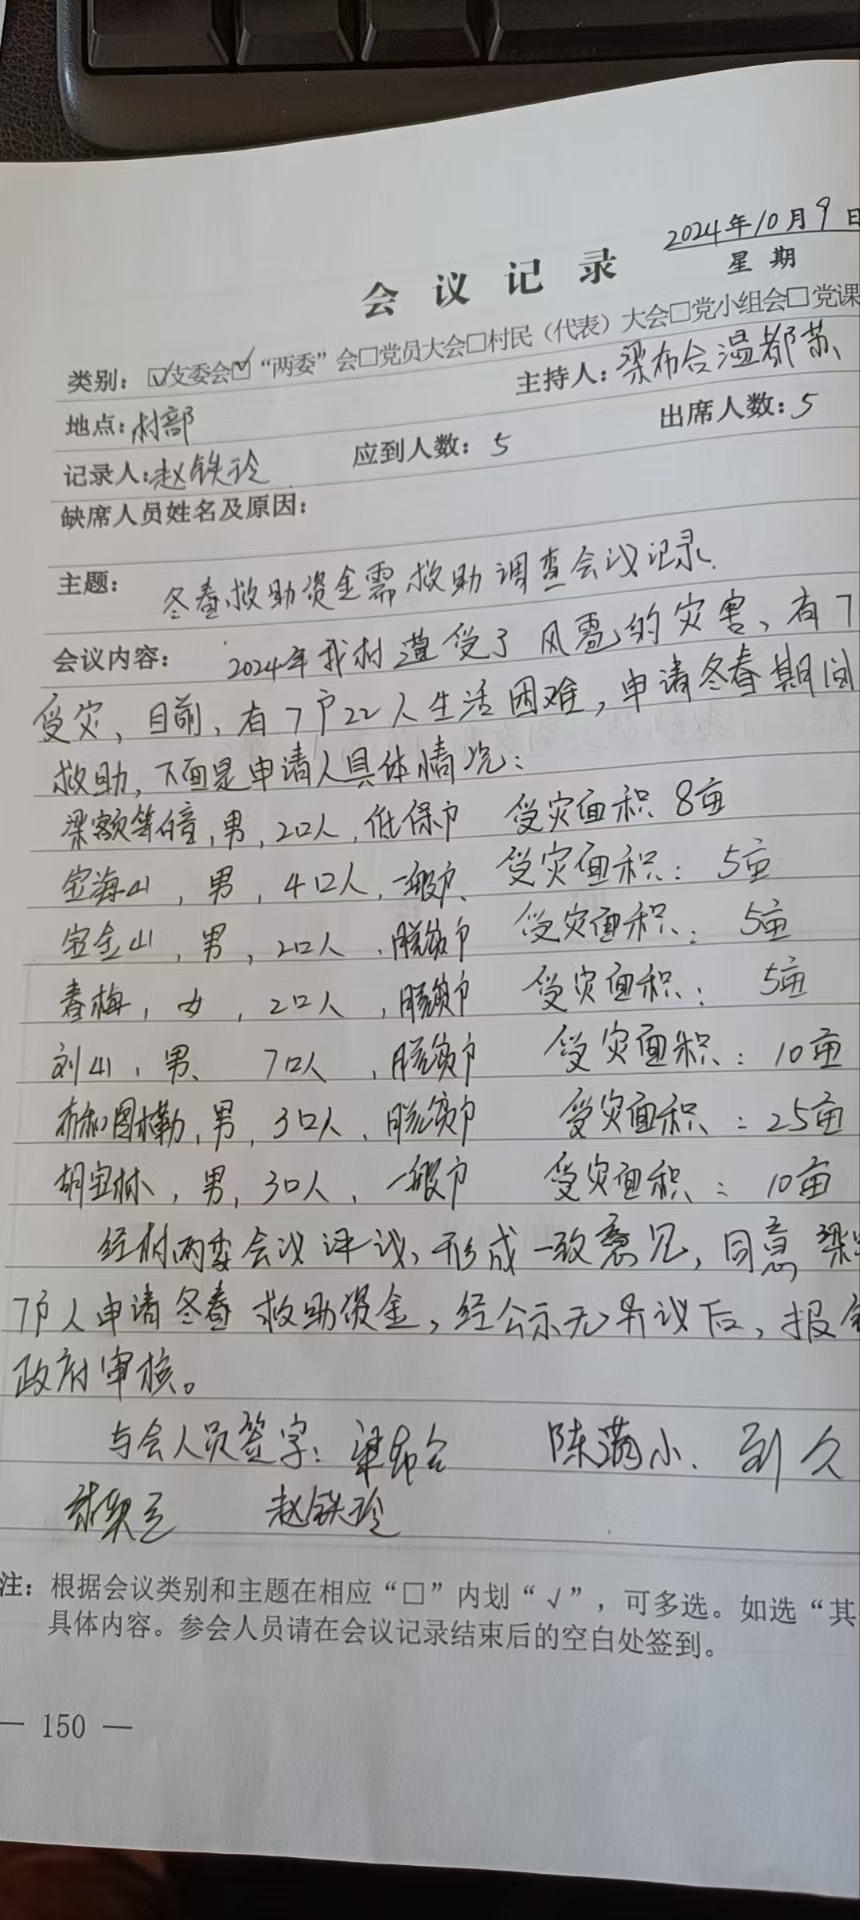 2024年10月9日
星期
会议记录
类别：☑支委会☑“两委”会□党员大会□村民（代表）大会□党小组会□党课
地点：村部 主持人：梁布合温都苏
记录人：赵铁玲 应到人数：5 出席人数：5
缺席人员姓名及原因：
主题： 冬春救助资金需救助调查会议记录.
会议内容： 2024年我村遭受了风雹的灾害、有7
受灾，目前，有7户22人生活困难，申请冬春期间
救助，下面是申请人具体情况：
梁额等倍，男，2口人，低保户 受灾面积8亩
宝海山，男，4口人，一般户、受灾面积：5亩
宝金山，男，2口人，脱贫户 受灾面积：5亩
春梅，女，2口人，脱贫户 受灾面积：5亩
刘山，男、7口人，脱贫户 受灾面积：10亩
布和图木勒，男，3口人，脱贫户 受灾面积：25亩
胡宝林，男，3口人，一般户 受灾面积：10亩
经村两委会议评议，形成一致意见，同意梁
7户人申请冬春救助资金，经公示无异议后，报
政府审核。
与会人员签字：梁布合 陈满小
赵铁玲
注：根据会议类别和主题在相应“□”内划“√”，可多选。如选“其
具体内容。参会人员请在会议记录结束后的空白处签到。
— 150 —